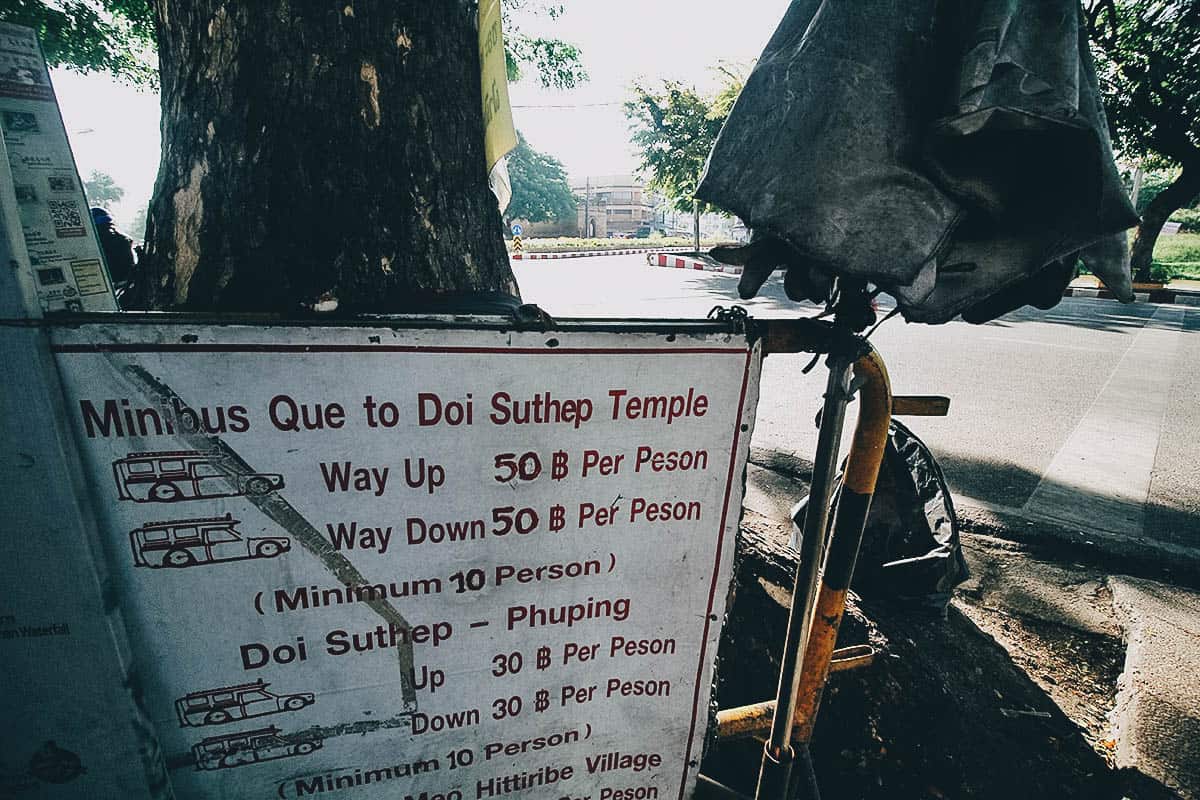 Minibus Que to Doi Suthep Temple
Way Up 50 ฿ Per Peson
Way Down 50 ฿ Per Peson
( Minimum 10 Person )
Doi Suthep - Phuping
Up 30 ฿ Per Peson
Down 30 ฿ Per Peson
(Minimum 10 Person )
Meo Hilltribe Village
Per Peson
Waterfall